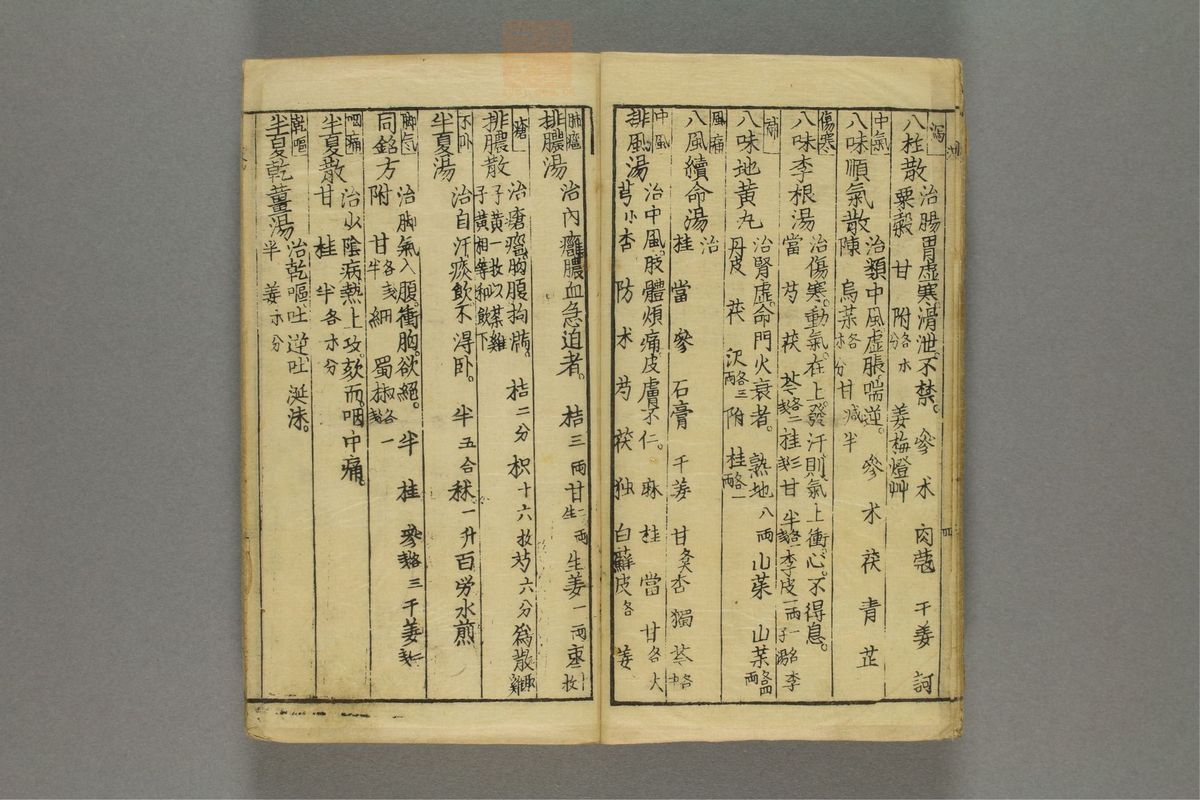 瀉
八柱散 治腸胃虚寒滑泄不禁。 參 朮 肉蔲 干姜 訶
粟殼 甘 附各 分 姜梅燈艸
中氣
八味順氣散 治類中風虚脹喘逆。 參 朮 茯 青 芷
陳 烏 各 分 甘減半
傷寒
八味李根湯 治傷寒動氣。在上發汗則氣上衝心。不得息。
當 芍 茯 芩各二 桂 甘 半各 李皮一兩
八味地黄丸 治腎虚。命門火衰者。 熟地八兩 山茱 山茱各四兩
丹皮 茯 沢各三兩 附 桂各一兩
風痛
八風續命湯 治
桂 當 參 石膏 干姜 甘灸 杏 獨 芩各
中風
排風湯 治中風。肢體煩痛皮膚不仁。 麻 桂 當 甘各大
芎小 杏 防 朮 芍 茯 独 白蘚皮各 姜
四
肺癰
排膿湯 治内癰膿血急迫者。 桔三兩 甘二兩生 生姜一兩 枣 枚
瘡
排膿散 治瘡癰胸腹拘満。 桔二分 枳十六枚 芍六分 為散
子黄一枚以 雞子黄相等和飲下
不卧
半夏湯 治自汗痰飲不得卧。 半五合 秫一升 百労水煎
脚氣
同銘方 治脚氣入腹。衝胸。欲絕。 半 桂 參各三 干姜二
附 甘各 半 細 蜀椒各一
咽痛
半夏散 治少陰病熱上攻。欬而。咽中痛。
甘 桂 半各 分
乾嘔
半夏乾薑湯 治乾嘔吐逆吐涎沫。
半 姜 分